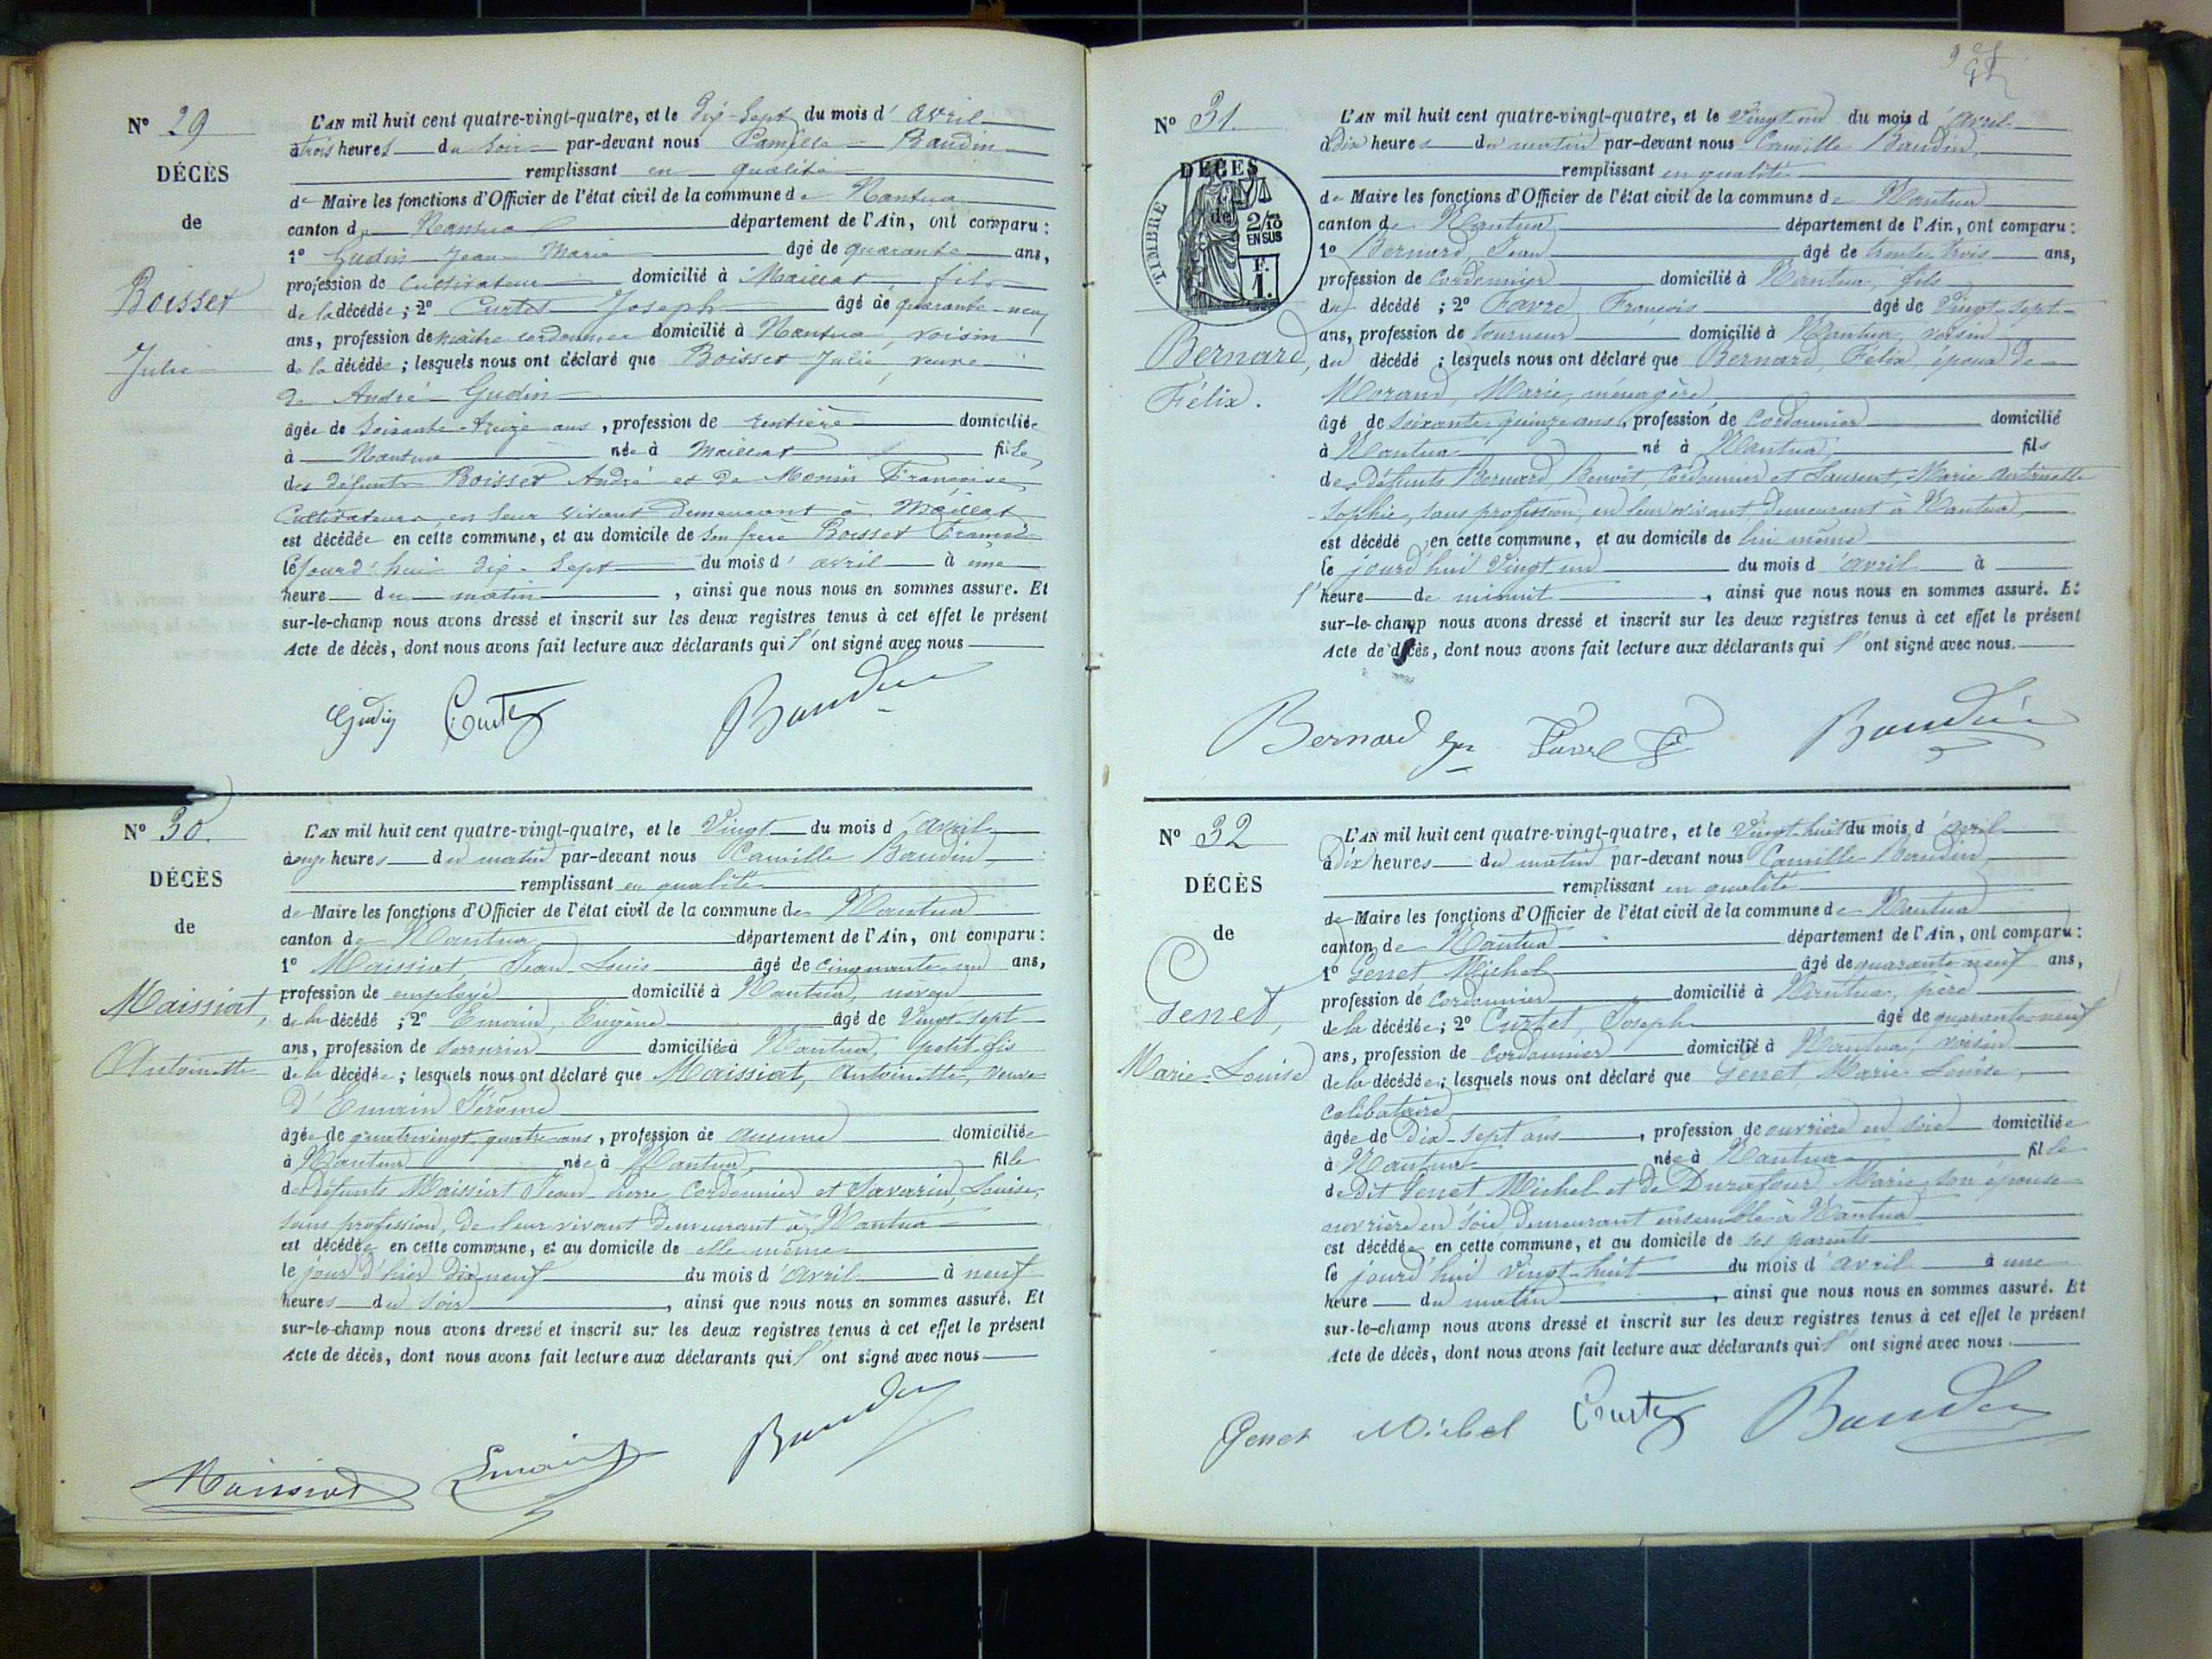 N° 29
DÉCÈS
de
Boisset
Julie
L'AN mil huit cent quatre-vingt-quatre, et le Dix-Sept du mois d' avril
à trois heures du Soir par-devant nous Camille Baudin
remplissant en qualité
de Maire les fonctions d'Officier de l'état civil de la commune de Nantua
canton de Nantua département de l'Ain, ont comparu :
1° Gudin Jean Marie âgé de quarante ans,
profession de Cultivateur domicilié à Maillat, fils
de la décédée ; 2° Curtet Joseph âgé de quarante-neuf
ans, profession de maître cordonnier domicilié à Nantua, voisin
de la décédée ; lesquels nous ont déclaré que Boisset Julie, veuve
de André Gudin
âgée de Soixante-treize ans, profession de rentière domiciliée
à Nantua née à Maillat fille
des défunts Boisset André et de Monin Françoise
Cultivateurs, en leur vivant Demeurant à Maillat
est décédée en cette commune, et au domicile de son frère Boisset
le jourd'hui dix-Sept du mois d' avril à une
heure du matin, ainsi que nous nous en sommes assuré. Et
sur-le-champ nous avons dressé et inscrit sur les deux registres tenus à cet effet le présent
Acte de décès, dont nous avons fait lecture aux déclarants qui l'ont signé avec nous
Gudin Curtet Baudin
N° 30.
DÉCÈS
de
Maissiat,
Antoinette
L'AN mil huit cent quatre-vingt-quatre, et le Vingt du mois d'avril
à onze heures du matin par-devant nous Camille Baudin
remplissant en qualité
de Maire les fonctions d'Officier de l'état civil de la commune de Nantua
canton de Nantua département de l'Ain, ont comparu :
1° Maissiat, Jean-Louis âgé de cinquante-un ans,
profession de employé domicilié à Nantua, neveu
de la décédé ; 2° Emain, Eugène âgé de Vingt-sept
ans, profession de Serrurier domicilié à Nantua, petit-fils
de la décédée ; lesquels nous ont déclaré que Maissiat, Antoinette, veuve
d'Emain Jérôme
âgée de quatrevingt-quatre ans, profession de aucune domiciliée
à Nantua née à Nantua fille
de défunts Maissiat Jean-Pierre Cordonnier et Savarin, Louise,
sans profession, de leur vivant demeurant à Nantua
est décédée en cette commune, et au domicile de elle même
le jour d'hier dix neuf du mois d'avril à neuf
heures du soir, ainsi que nous nous en sommes assuré. Et
sur-le-champ nous avons dressé et inscrit sur les deux registres tenus à cet effet le présent
Acte de décès, dont nous avons fait lecture aux déclarants qui l'ont signé avec nous
Maissiat Emain Baudin
N° 31.
DÉCÈS
de
TIMBRE
2/10
EN SUS
F.
1.
Bernard,
Félix.
L'AN mil huit cent quatre-vingt-quatre, et le Vingt un du mois d'avril
à dix heures du matin par-devant nous Camille Baudin,
remplissant en qualité
de Maire les fonctions d'Officier de l'état civil de la commune de Nantua
canton de Nantua département de l'Ain, ont comparu :
1° Bernard Jean âgé de trente trois ans,
profession de Cordonnier domicilié à Nantua, fils
du décédé ; 2° Favre François âgé de Vingt-sept
ans, profession de tourneur domicilié à Nantua, voisin
du décédé ; lesquels nous ont déclaré que Bernard, Félix, époux de
Morand, Marie, ménagère,
âgé de soixante-quinze ans, profession de Cordonnier domicilié
à Nantua né à Nantua fils
des défunts Bernard, Benoît, Cordonnier et Laurent, Marie Antoinette
Sophie, sans profession, en leur vivant, demeurant à Nantua,
est décédé en cette commune, et au domicile de lui même
le jourd'hui Vingt un du mois d'avril à
l'heure de minuit, ainsi que nous nous en sommes assuré. Et
sur-le-champ nous avons dressé et inscrit sur les deux registres tenus à cet effet le présent
Acte de décès, dont nous avons fait lecture aux déclarants qui l'ont signé avec nous.
Bernard Favre F Baudin
N° 32
DÉCÈS
de
Genet,
Marie-Louise
L'AN mil huit cent quatre-vingt-quatre, et le Vingt-huit du mois d'avril
à Dix heures du matin par-devant nous Camille Baudin
remplissant en qualité
de Maire les fonctions d'Officier de l'état civil de la commune de Nantua
canton de Nantua département de l'Ain, ont comparu :
1° Genet Michel âgé de quarante neuf ans,
profession de Cordonnier domicilié à Nantua, père
de la décédée ; 2° Curtet, Joseph âgé de quarante-neuf
ans, profession de Cordonnier domicilié à Nantua, voisin
de la décédée ; lesquels nous ont déclaré que Genet, Marie-Louise,
Célibataire
âgée de Dix-sept ans, profession de ouvrière en soie domiciliée
à Nantua née à Nantua fille
de Dit Genet Michel et de Durafour Marie, son épouse
ouvrière en soie demeurant ensemble à Nantua
est décédée en cette commune, et au domicile de ses parents
le jourd'hui Vingt-huit du mois d'avril à une
heure du matin, ainsi que nous nous en sommes assuré. Et
sur-le-champ nous avons dressé et inscrit sur les deux registres tenus à cet effet le présent
Acte de décès, dont nous avons fait lecture aux déclarants qui l'ont signé avec nous.
Genet Michel Curtet Baudin